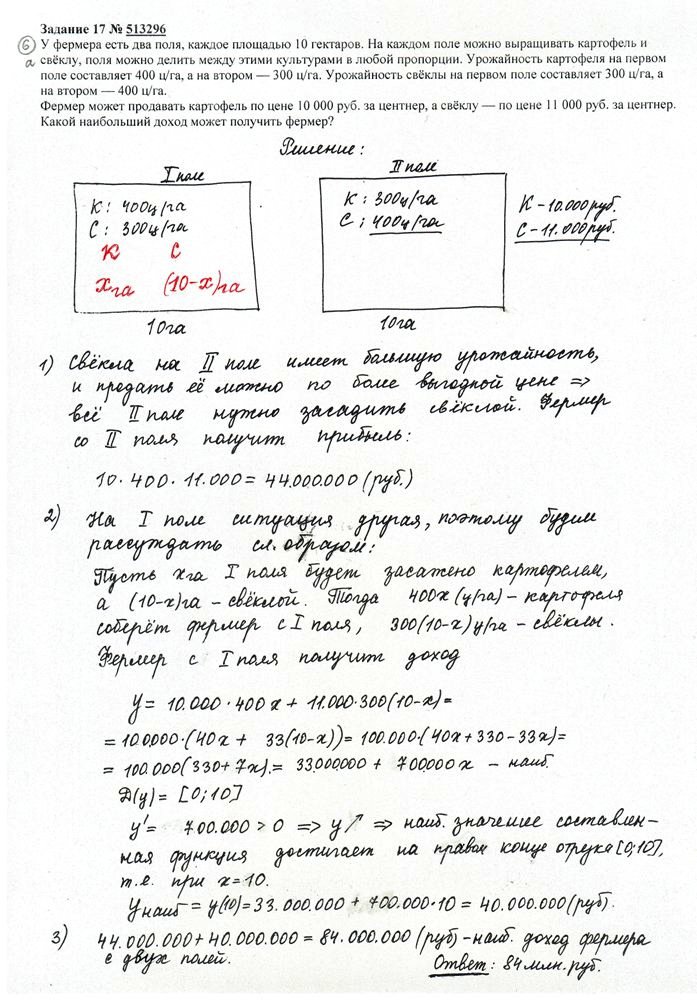 Задание 17 № 513296
6 а
У фермера есть два поля, каждое площадью 10 гектаров. На каждом поле можно выращивать картофель и
свёклу, поля можно делить между этими культурами в любой пропорции. Урожайность картофеля на первом
поле составляет 400 ц/га, а на втором — 300 ц/га. Урожайность свёклы на первом поле составляет 300 ц/га, а
на втором — 400 ц/га.
Фермер может продавать картофель по цене 10 000 руб. за центнер, а свёклу — по цене 11 000 руб. за центнер.
Какой наибольший доход может получить фермер?
Решение:
I поле
К: 400ц/га
С: 300ц/га
К С
х га (10-х)га
10га
II поле
К: 300ц/га
С: 400ц/га
10га
К - 10.000руб.
С - 11.000руб.
1) Свёкла на II поле имеет большую урожайность,
и продать её можно по более выгодной цене =>
всё II поле нужно засадить свёклой. Фермер
со II поля получит прибыль:
10 · 400 · 11.000 = 44.000.000 (руб.)
2) На I поле ситуация другая, поэтому будем
рассуждать сл. образом:
Пусть х га I поля будет засажено картофелем,
а (10-х)га - свёклой. Тогда 400х (ц/га) - картофеля
соберёт фермер с I поля, 300(10-х) ц/га - свёклы.
Фермер с I поля получит доход
y = 10.000 · 400х + 11.000·300(10-х)=
= 100.000·(40х + 33(10-х)) = 100.000·(40х+330-33х)=
= 100.000(330+7х).= 33.000.000 + 700.000х - наиб.
D(y) = [0;10]
y' = 700.000 > 0 => y ↗ => наиб. значение составлен-
ная функция достигает на правом конце отрезка [0;10],
т.е. при х=10.
Yнаиб = y(10)=33.000.000 + 700.000·10 = 40.000.000(руб).
3) 44.000.000+40.000.000 = 84.000.000 (руб) - наиб. доход фермера
с двух полей.
Ответ: 84 млн. руб.